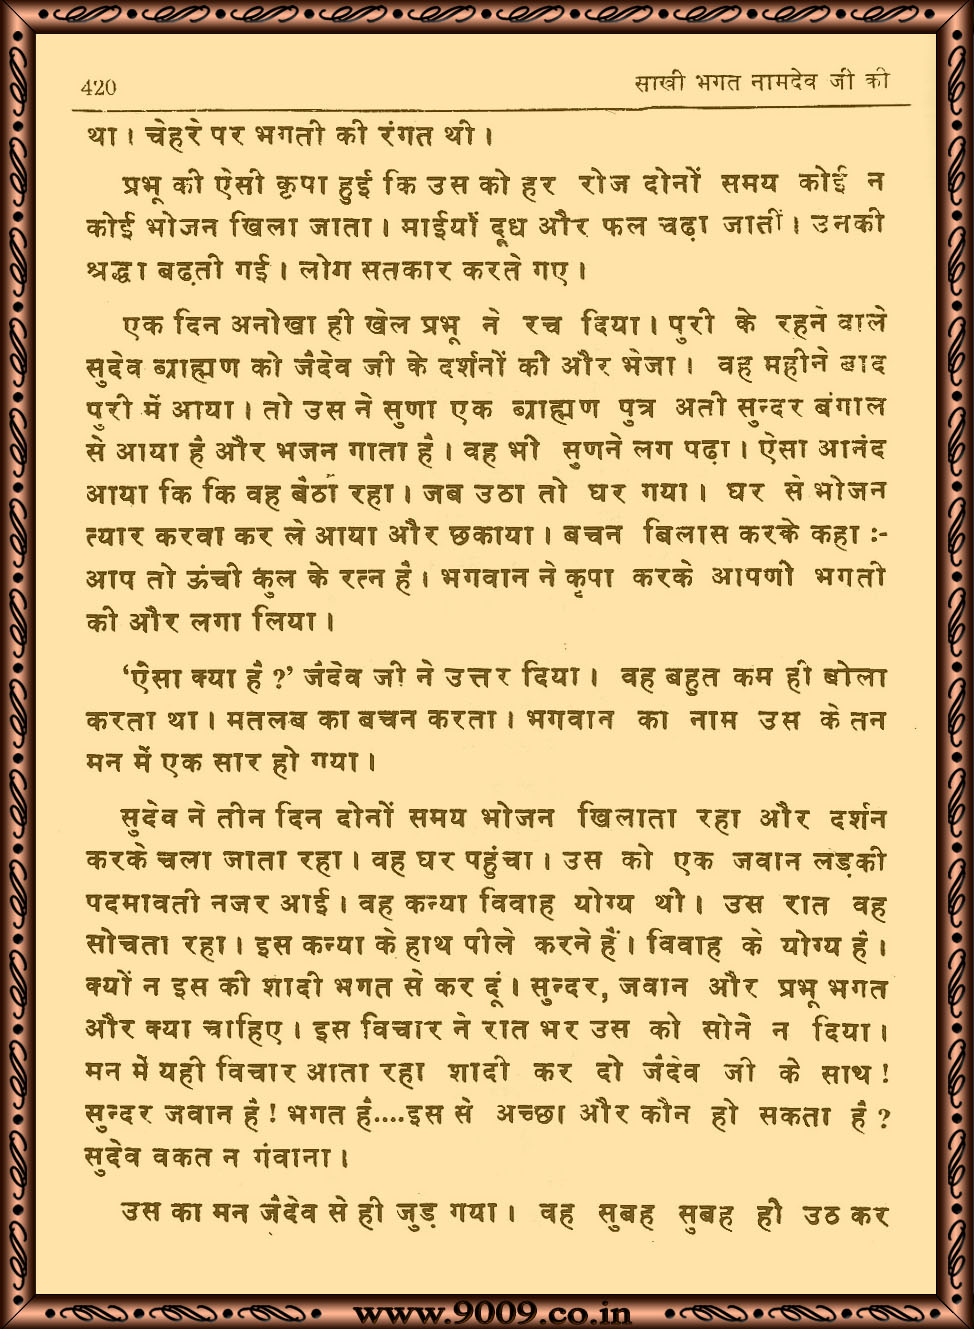 420
साखी भगत नामदेव जी की
था। चेहरे पर भगती की रंगत थी।
प्रभू की ऐसी कृपा हुई कि उस को हर रोज दोनों समय कोई न
कोई भोजन खिला जाता। माईयाँ दूध और फल चढ़ा जातीं। उनकी
श्रद्धा बढ़ती गई। लोग सतकार करते गए।
एक दिन अनोखा ही खेल प्रभू ने रच दिया। पुरी के रहने वाले
सुदेव ब्राह्मण को जैदेव जी के दर्शनों की और भेजा। वह महीने बाद
पुरी में आया। तो उस ने सुणा एक ब्राह्मण पुत्र अती सुन्दर बंगाल
से आया है और भजन गाता है। वह भी सुणने लग पढ़ा। ऐसा आनंद
आया कि कि वह बैठा रहा। जब उठा तो घर गया। घर से भोजन
त्यार करवा कर ले आया और छकाया। बचन बिलास करके कहा :-
आप तो ऊंची कुल के रत्न है। भगवान ने कृपा करके आपणी भगती
की और लगा लिया।
‘ऐसा क्या है ?’ जैदेव जी ने उत्तर दिया। वह बहुत कम ही बोला
करता था। मतलब का बचन करता। भगवान का नाम उस के तन
मन में एक सार हो गया।
सुदेव ने तीन दिन दोनों समय भोजन खिलाता रहा और दर्शन
करके चला जाता रहा। वह घर पहुंचा। उस को एक जवान लड़की
पदमावती नजर आई। वह कन्या विवाह योग्य थी। उस रात वह
सोचता रहा। इस कन्या के हाथ पीले करने हैं। विवाह के योग्य है।
क्यों न इस की शादी भगत से कर दूं। सुन्दर, जवान और प्रभू भगत
और क्या चाहिए। इस विचार ने रात भर उस को सोने न दिया।
मन में यही विचार आता रहा शादी कर दो जैदेव जी के साथ !
सुन्दर जवान है ! भगत है....इस से अच्छा और कौन हो सकता है ?
सुदेव वकत न गंवाना।
उस का मन जैदेव से ही जुड़ गया। वह सुबह सुबह ही उठ कर
www.9009.co.in